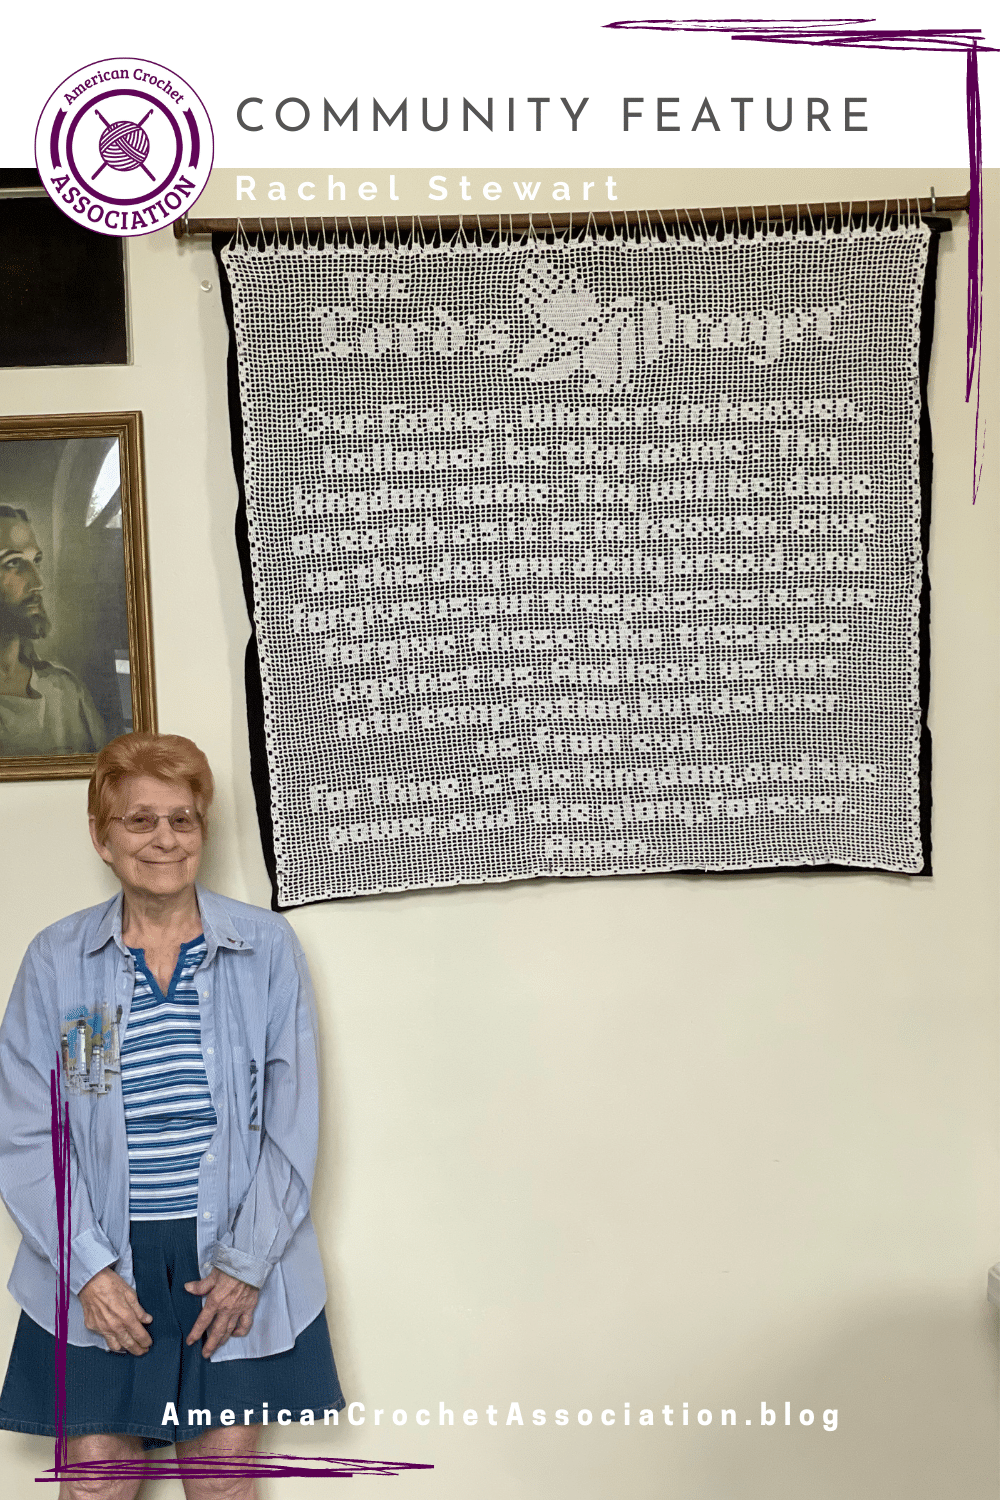 American Crochet
ASSOCIATION
COMMUNITY FEATURE
Rachel Stewart
THE
Lords Prayer
Our Father, Who art in heaven,
hallowed be thy name; Thy
kingdom come; Thy will be done
on earth as it is in heaven. Give
us this day our daily bread, and
forgive us our trespasses as we
forgive those who trespass
against us. And lead us not
into temptation, but deliver
us from evil.
For Thine is the kingdom, and the
power, and the glory, for ever
Amen.
AmericanCrochetAssociation.blog